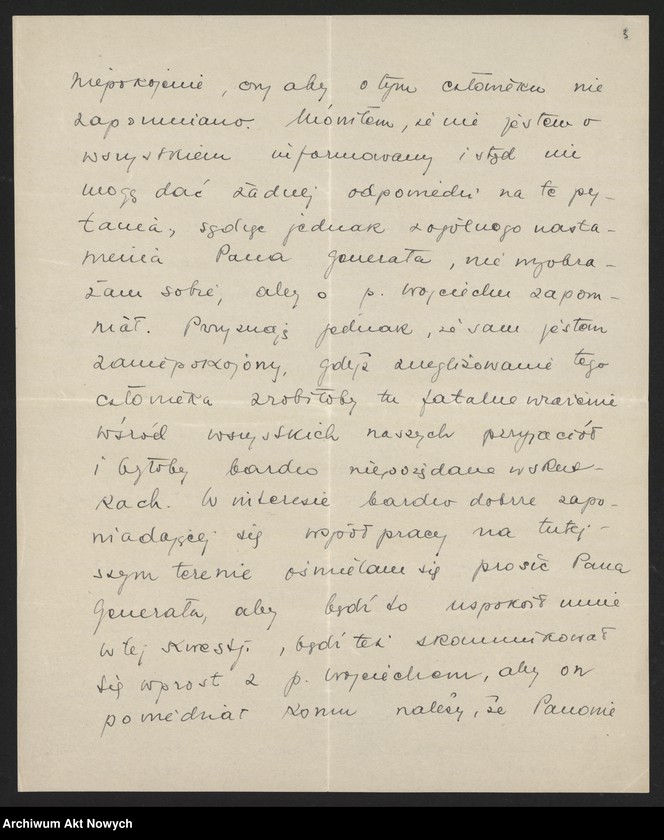 3
niepokojenie, czy aby o tym człowieku nie
zapomniano. Mówiłem, że nie jestem o
wszystkiem informowany i stąd nie
mogę dać żadnej odpowiedzi na te py-
tania, sądząc jednak z ogólnego nasta-
wienia Pana Generała, nie wyobra-
żam sobie, aby o p. Wojciechu zapom-
niał. Przyznaję jednak, że sam jestem
zaniepokojony, gdyż zneglizowanie tego
człowieka zrobiłoby tu fatalne wrażenie
wśród wszystkich naszych przyjaciół
i byłoby bardzo niepożądane w skut-
kach. W interesie bardzo dobrze zapo-
wiadającej się współpracy na tutej-
szym terenie ośmielam się prosić Pana
Generała, aby bądź to uspokoił mnie
w tej kwestji, bądź też skomunikował
się wprost z p. Wojciechem, aby on
powiedział komu należy, że Panowie
Archiwum Akt Nowych